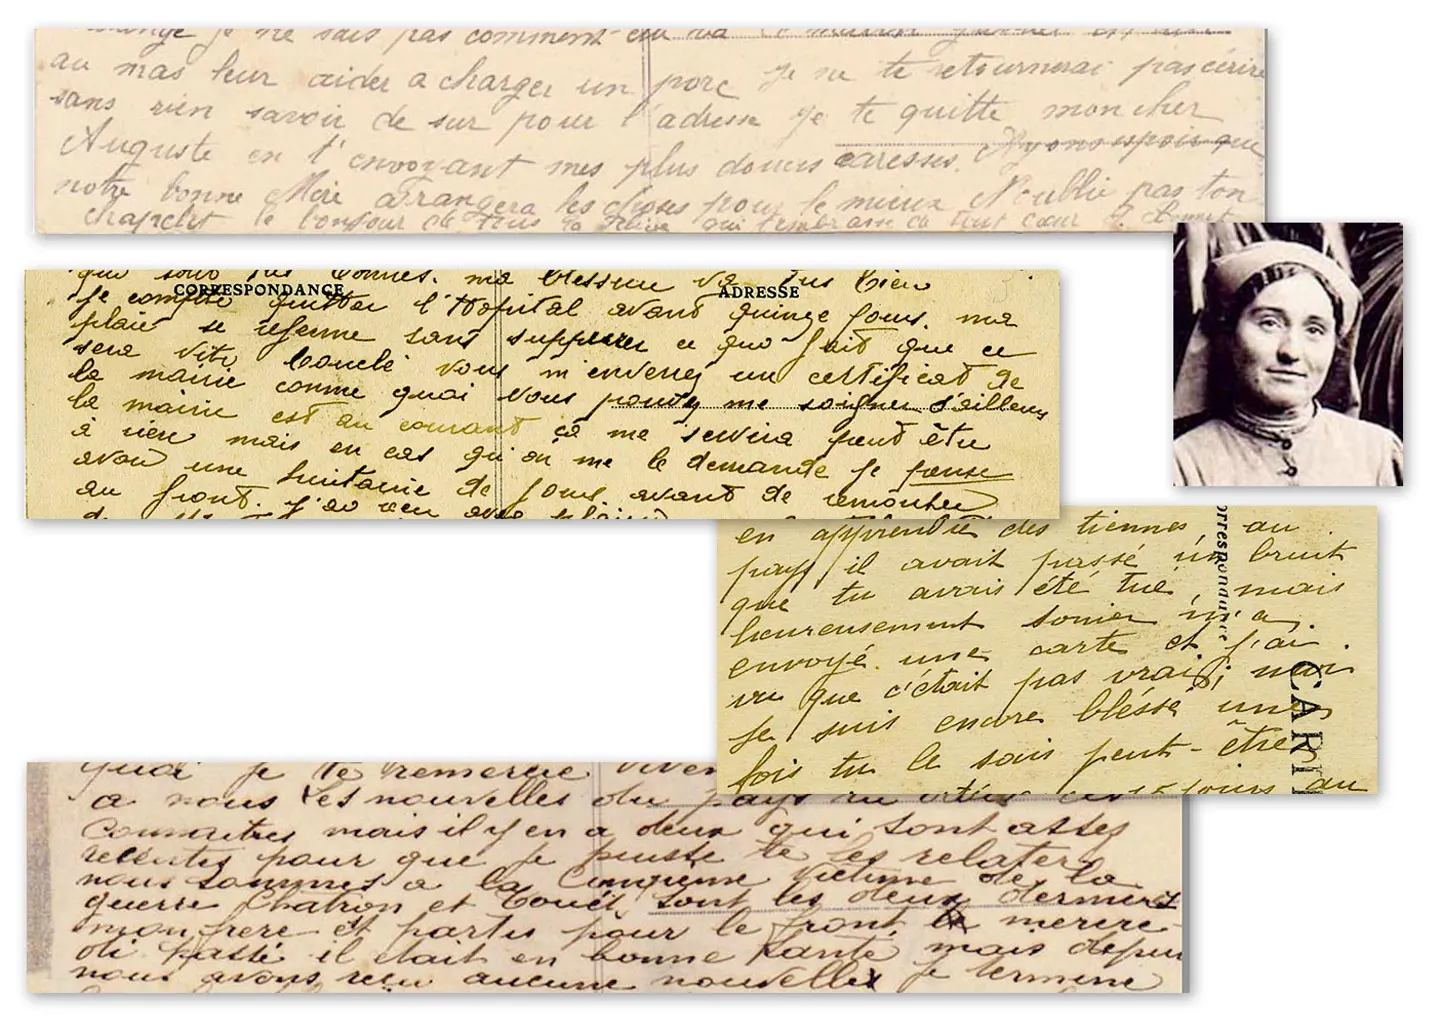 je ne sais pas comment ça va
au mas leur aider a charger un porc je ne te retournerai pas cérire
sans rien savoir de sur pour l'adresse je te quitte mon cher
Auguste en t'envoyant mes plus douces caresses. Ayons espoir que
notre bonne Mère arrangera les choses pour le mieux N'oublie pas ton
chapelet le bonjour de tous ta qui t'embrasse de tout coeur
que sont très bonnes. ma blessure va très bien
CORRESPONDANCE ADRESSE
je compte quitter l'Hopital avant quinze jours. ma
plaie se referme sans suppurer ce quo fait que ce
sera vite bouclé vous m'enverrez un certificat de
la mairie comme quoi vous pouvez me soigner d'ailleurs
la mairie est au courant ça me servira peut être
à rien mais en cas qu'on me le demande je pense
avoir une huitaine de jours avant de remonter
au front. j'ai reçu avec plaisir
en apprendre des tiennes au
pays il avait passé un bruit
que tu avais été tué, mais
heureusement m'a
envoyé une carte et j'ai
vu que c'était pas vrai; moi
je suis encore bléssé une
fois tu le sais peut-être
jours au
Correspondance
CART
quoi je te remercie
a nous les nouvelles du pays
connaitres mais il y en a deux qui sont assez
recentes pour que je puisse te les relater
nous sommes a la Cinquieme victime de la
guerre Chatron et Couët sont les deux derniers
mon frere et partis pour le front le mercre-
di passé il etait en bonne sante mais depuis
nous avons reçu aucune nouvelles je termine